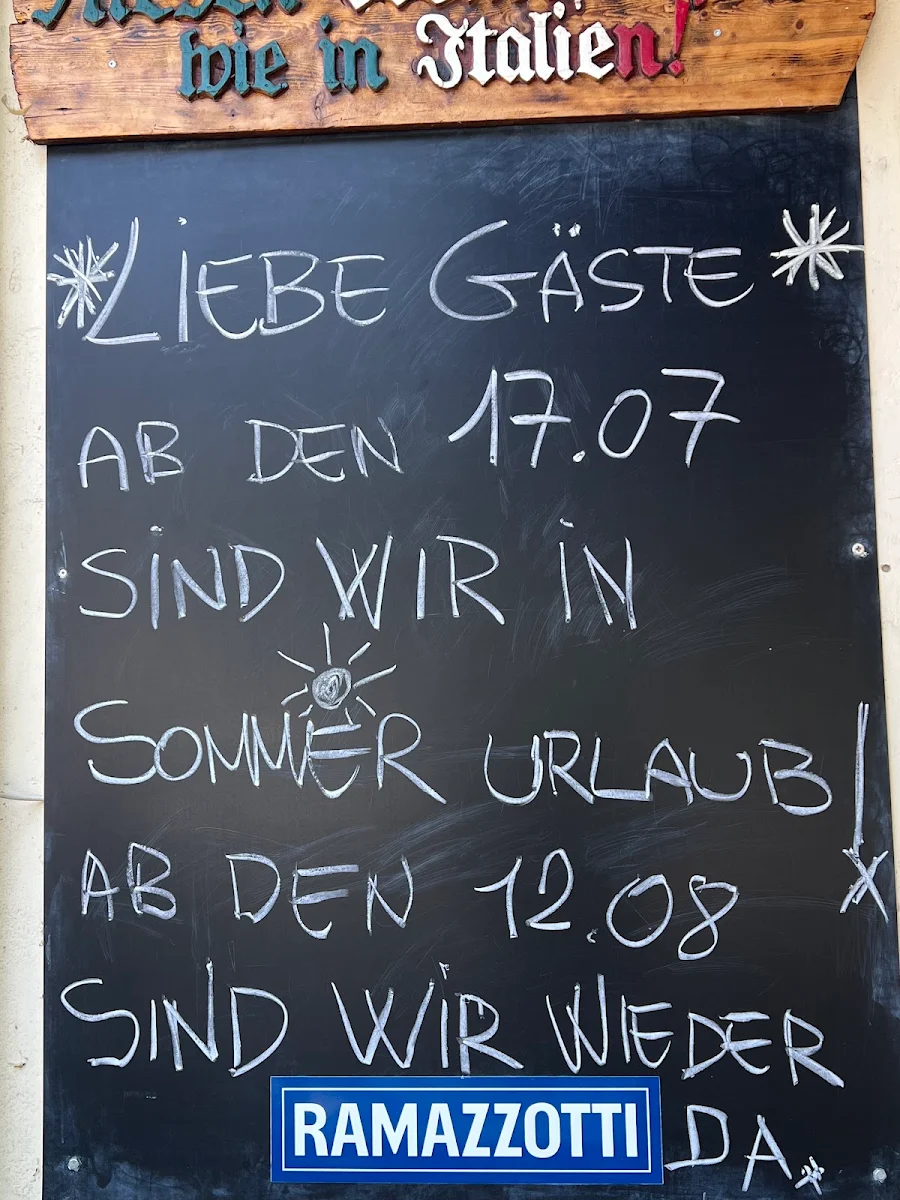 wie in Italien!
LIEBE GÄSTE
AB DEN 17.07
SIND WIR IN
SOMMER URLAUB!
AB DEN 12.08
SIND WIR WIEDER
RAMAZZOTTI DA.